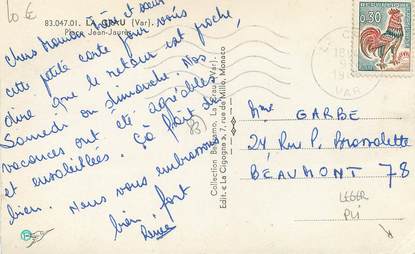 10 €
83.047.01. LA CRAU (Var).
Place Jean-Jaurès
Chers Maman, et sœur
cette petite carte pour vous
dire que le retour est proche,
Samedi ou Dimanche. Nos
vacances ont été agréables
et ensoleillées. Ça fait du
bien. Nous vous embrassons
bien fort
Collection Bergamo, La Crau (Var).
Edit. « La Cigogne », 7, rue de Millo, Monaco
83
REPUBLIQUE FRANÇAISE
0,30
POSTES
LA C
VAR
Mme GARBE
24 Rue P. Brossolette
BEAUMONT 78
LEGER
PLI